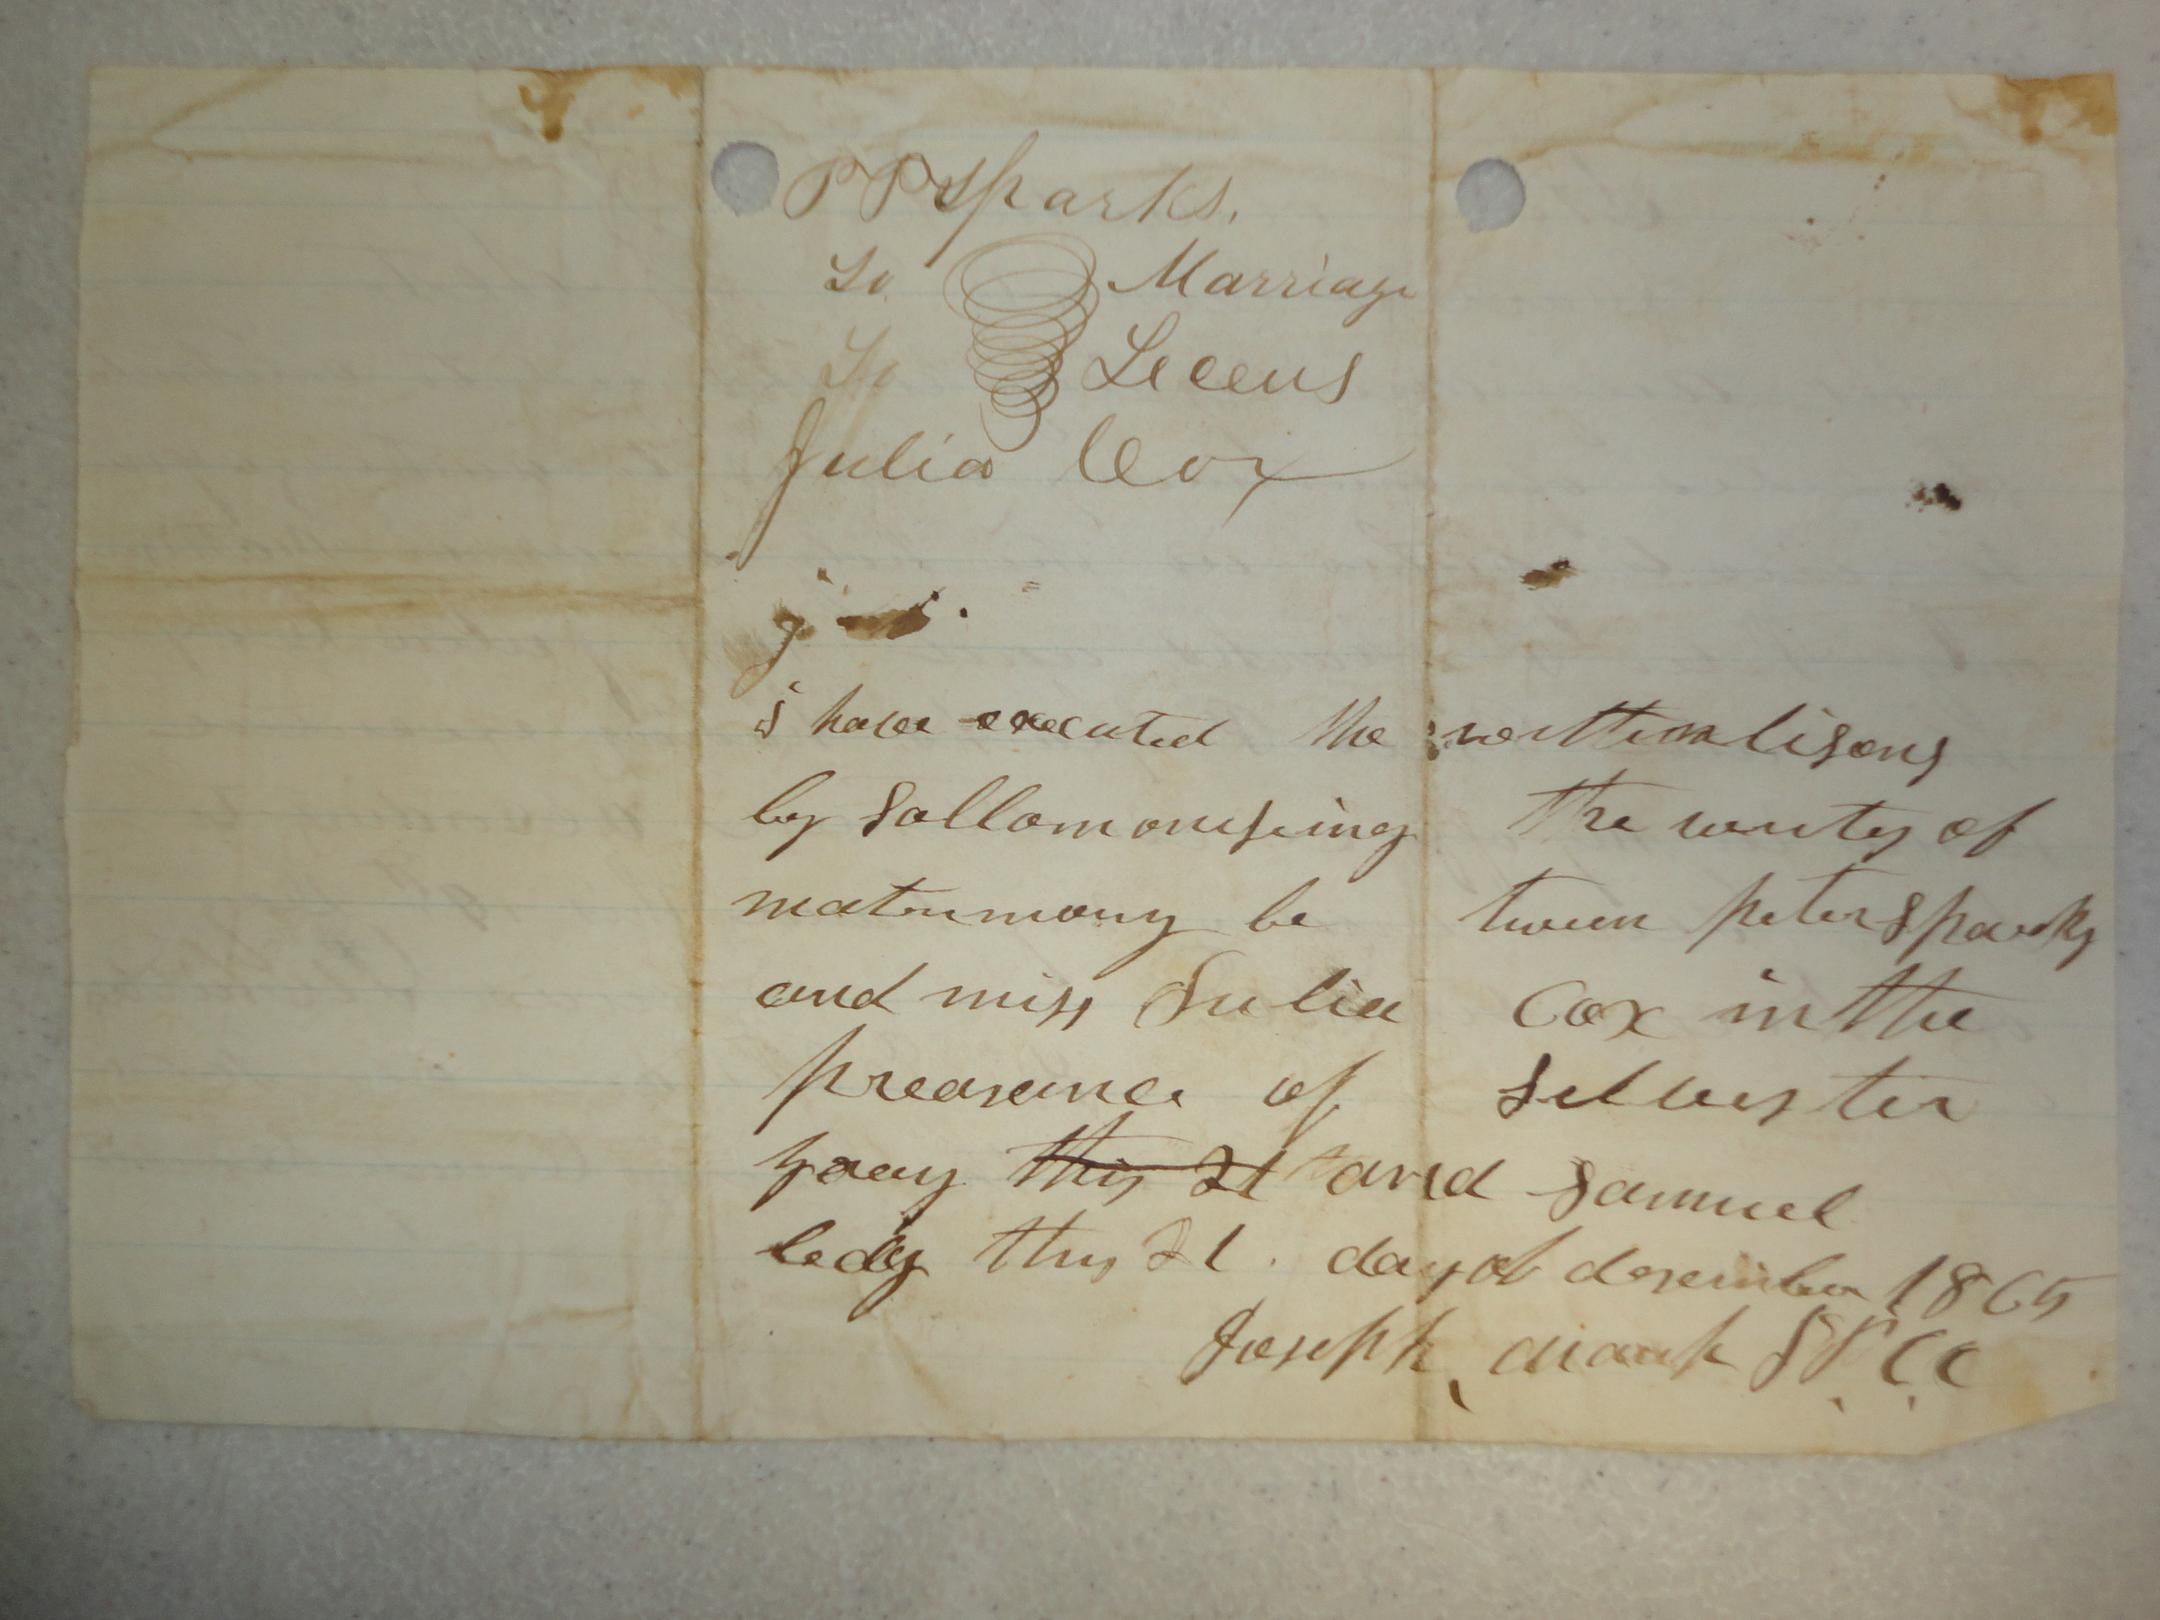 P P Sparks.
To Marriage
To Licens
Julia Cox
j
i have executed the writtin lisens
by sollomonising the writs of
matrimony be tween peter sparks
and miss Julia Cox in the
preasence of Silvester
gray this 21 and Samuel
ledy this 21. day of desember 1865
Joseph J P C C